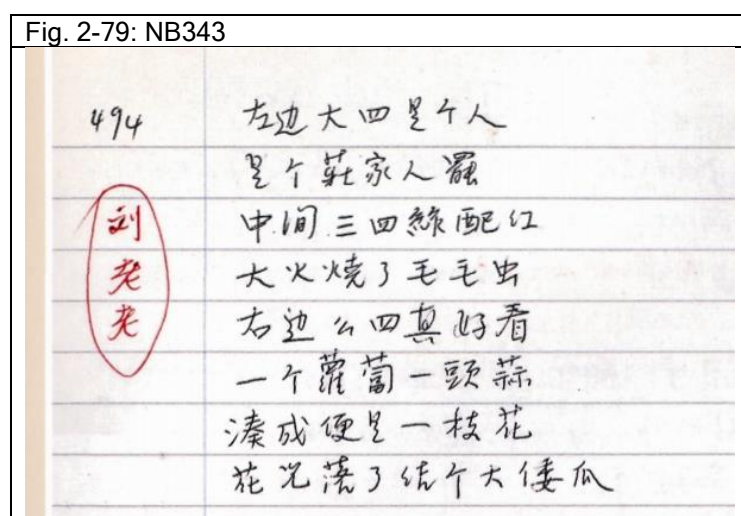 Fig. 2-79: NB343
494 左边大四是个人
是个莊家人罷
中间三四綠配红
大火烧了毛毛虫
右边么四真好看
一个蘿蔔一頭蒜
湊成便是一枝花
花児落了结个大倭瓜
刘老老